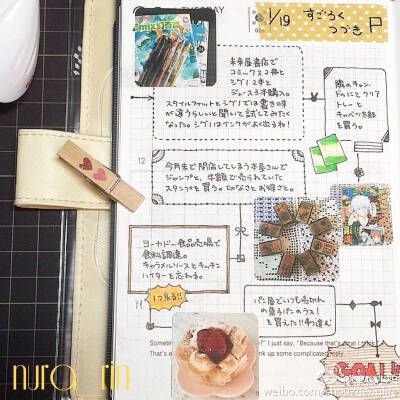 TUESDAY
1/19 すごろく
つづき
未来屋書店で
コミックス2冊と
ジグリ2本と
ジュース3本購入。
スタイルフィットとジグリでは書き味
が違うらしいと聞いて試してみたく
なった。ジグリはインクがよく出るね!
隣のキャン
ドゥにてクリア
トレーと
キャベツ太郎
を買う。
12
今月末で閉店してしまう本屋さんで
ジャンプと、半額で売られていた
スタンプを買う。切なさとお得さと。
ヨーカドー食品売場で
食料調達。
キャラメルソースとキッチン
ハイターを忘れる。
1コ戻る!!
パン屋でいつも売切れ
の菓子パンのラス1
を買えた!!4つ進む
GOAL!!
I just say, "Because that's what I think."
That's
up some complicated reply
nura rin
weibo.com/